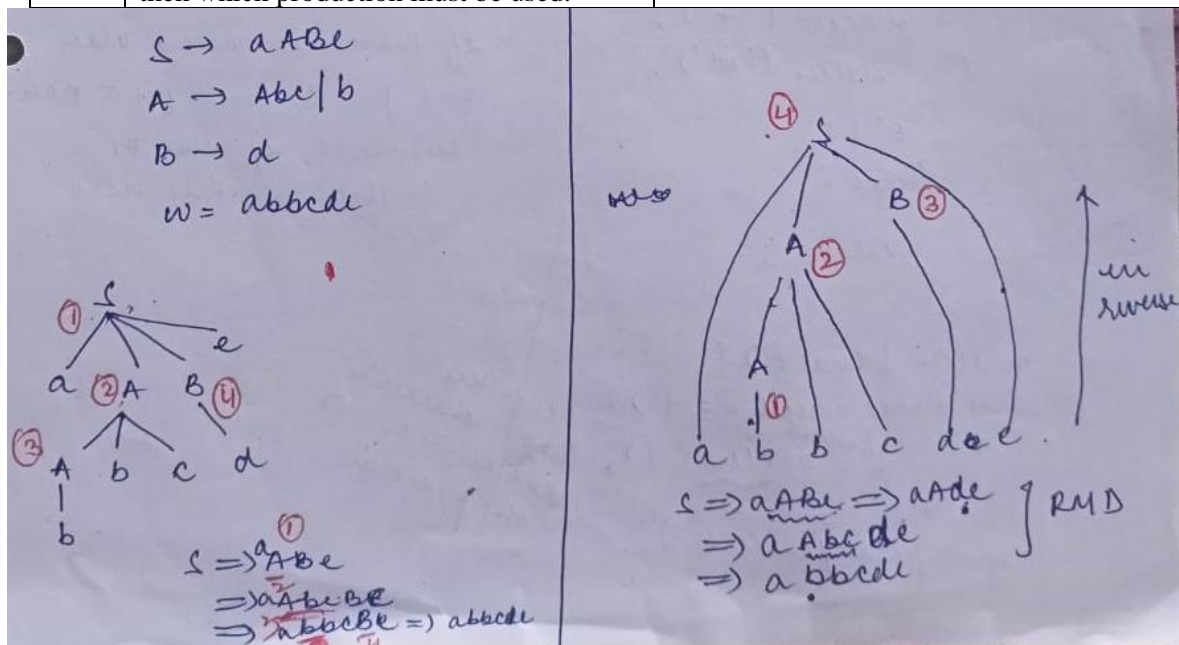 then which production must be used.
S → aABe
A → Abc | b
B → d
w = abbcde
① S
a ② A B ④ e
③ A b c d
b
①
S ⇒ aABe
2
⇒ aAbcBe
⇒ 3 abbcBe ⇒ abbcde
4
④ S
B ③
A ②
A
①
a b b c d e
in
reverse
S ⇒ aABe ⇒ aAde
⇒ a Abc de
⇒ a bbcde
} RMD